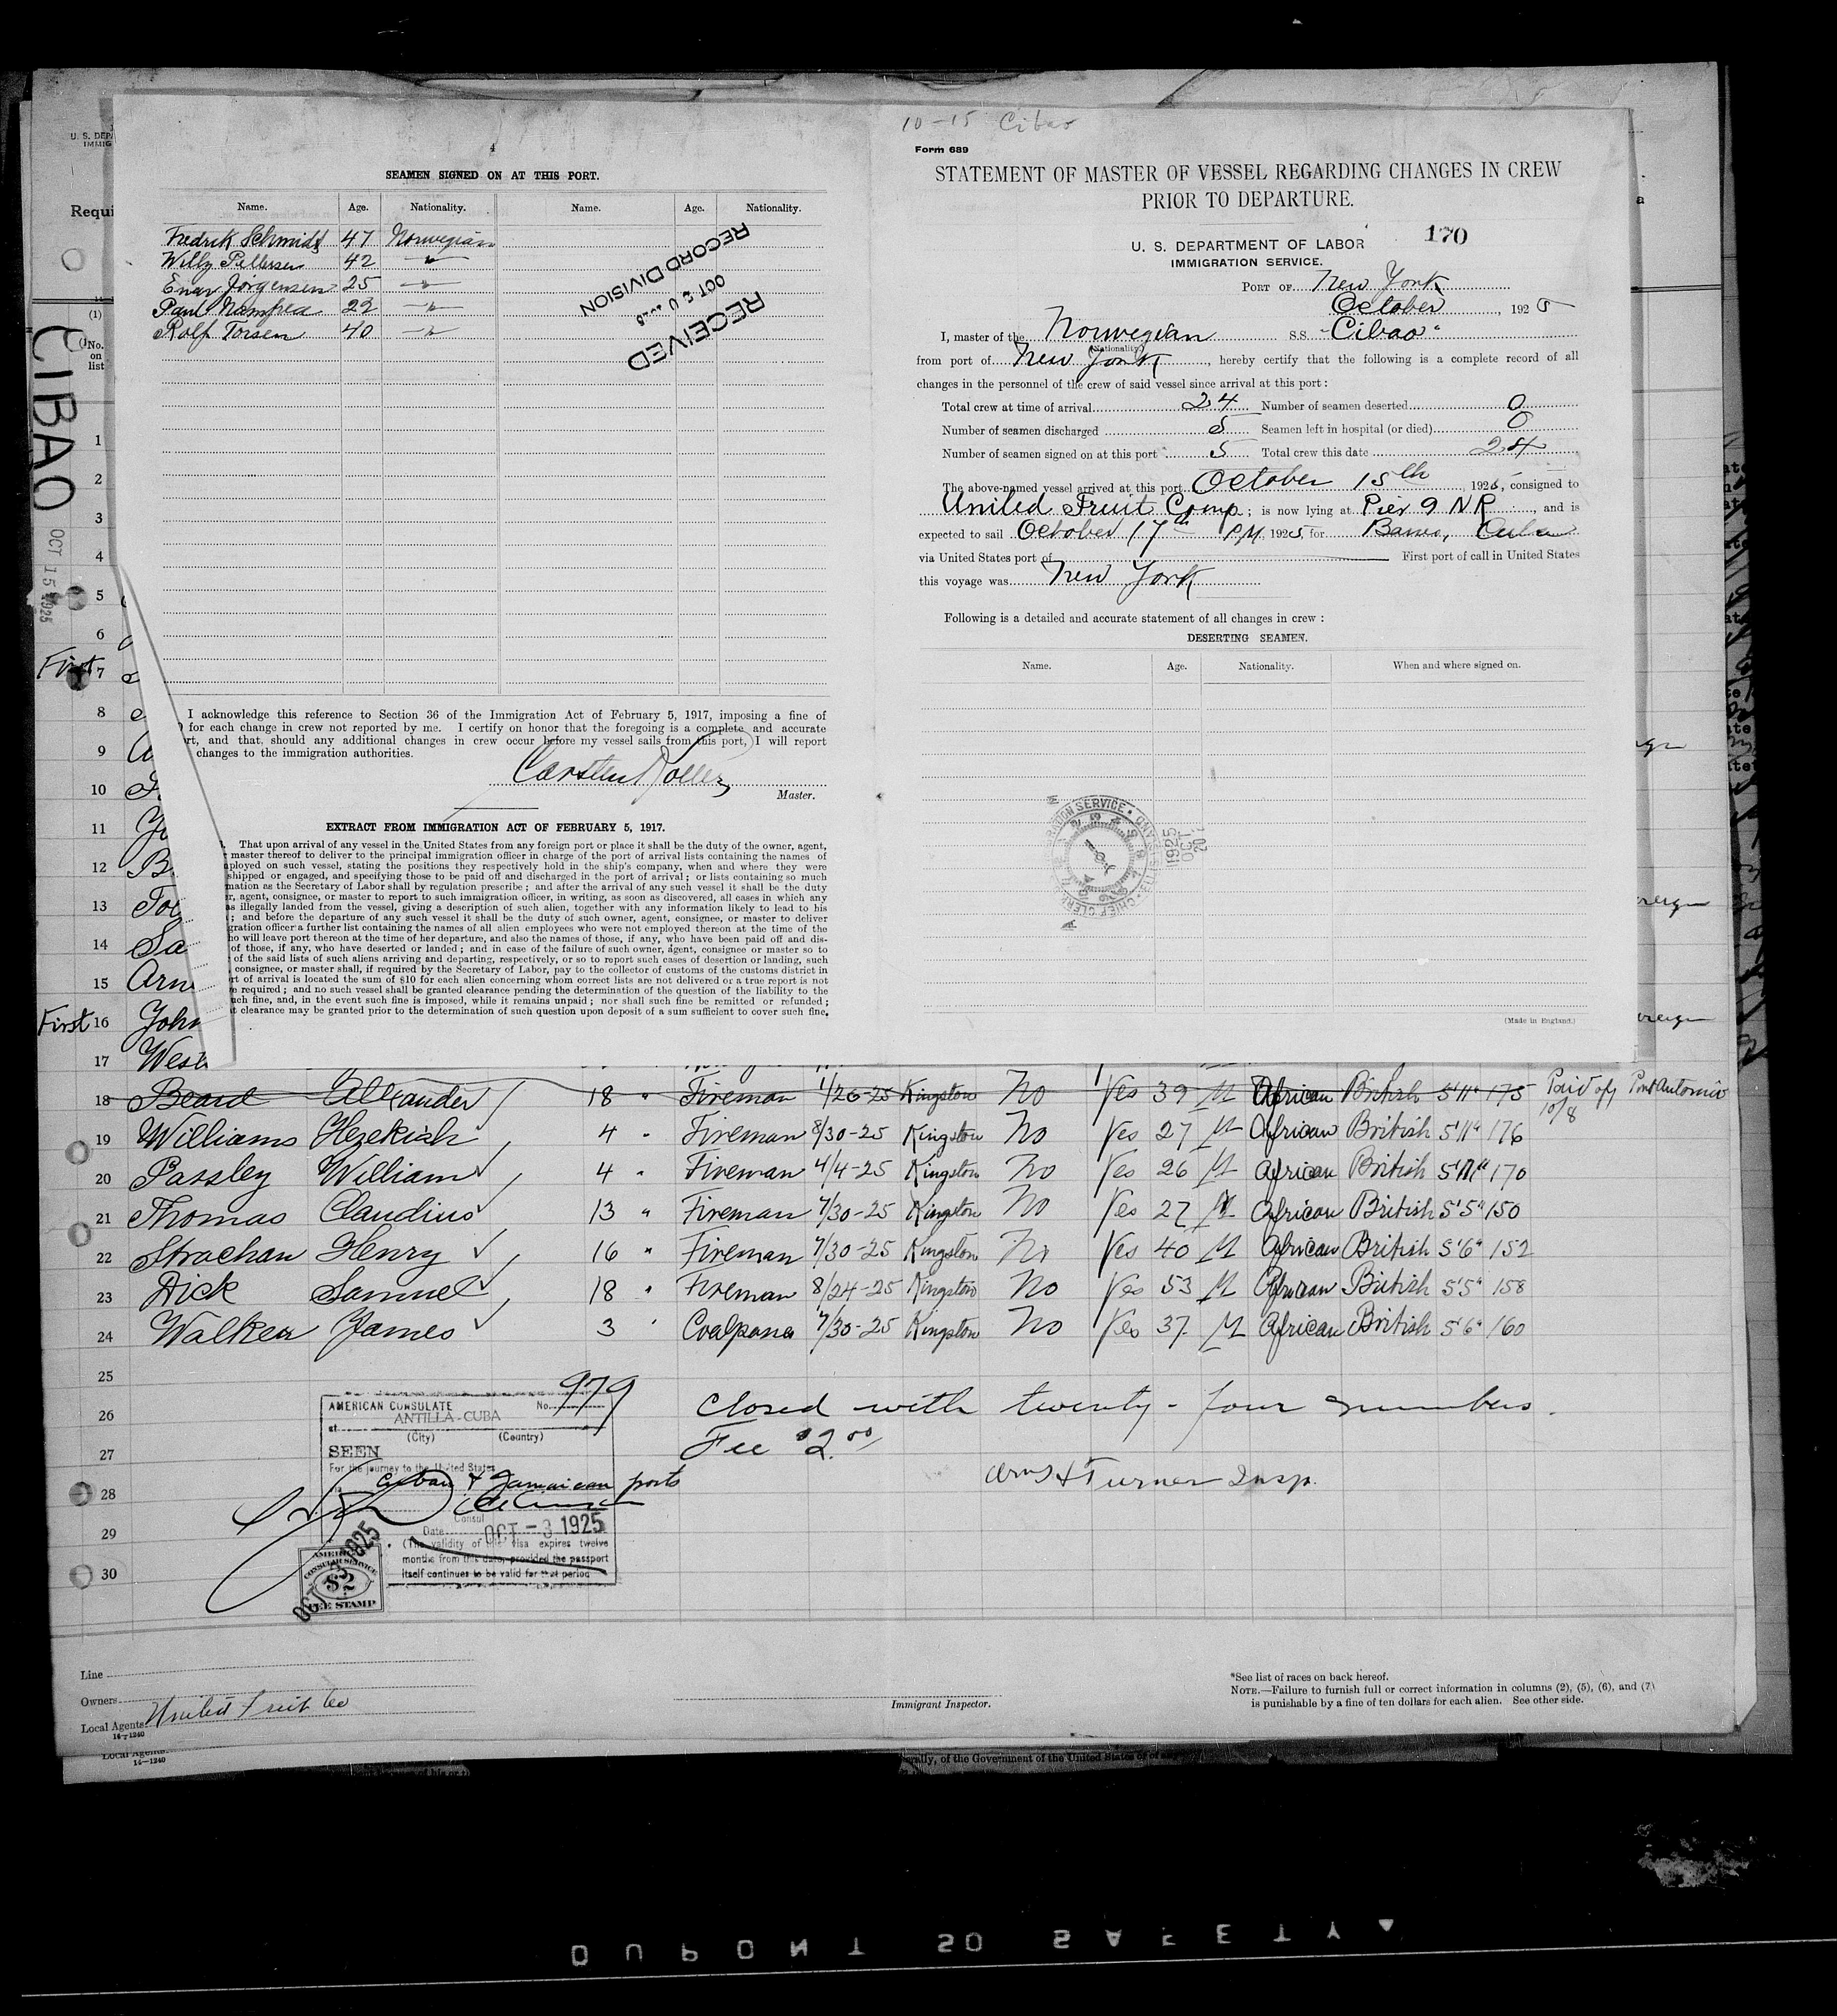 10-15 Cibao
4
SEAMEN SIGNED ON AT THIS PORT.
Name. Age. Nationality. Name. Age. Nationality.
Fredrik Schmidt 47 Norwegian
Willy Pettersen 42 -"-
Enar Jörgensen 25 -"-
Paul 22 -"-
Rolf Torsen 40 -"-
RECEIVED
OCT 20 1925
RECORD DIVISION
I acknowledge this reference to Section 36 of the Immigration Act of February 5, 1917, imposing a fine of
for each change in crew not reported by me. I certify on honor that the foregoing is a complete and accurate
rt, and that, should any additional changes in crew occur before my vessel sails from this port, I will report
changes to the immigration authorities.
Carsten
Master.
EXTRACT FROM IMMIGRATION ACT OF FEBRUARY 5, 1917.
That upon arrival of any vessel in the United States from any foreign port or place it shall be the duty of the owner, agent,
master thereof to deliver to the principal immigration officer in charge of the port of arrival lists containing the names of
mployed on such vessel, stating the positions they respectively hold in the ship's company, when and where they were
shipped or engaged, and specifying those to be paid off and discharged in the port of arrival; or lists containing so much
mation as the Secretary of Labor shall by regulation prescribe; and after the arrival of any such vessel it shall be the duty
er, agent, consignee, or master to report to such immigration officer, in writing, as soon as discovered, all cases in which any
as illegally landed from the vessel, giving a description of such alien, together with any information likely to lead to his
; and before the departure of any such vessel it shall be the duty of such owner, agent, consignee, or master to deliver
gration officer a further list containing the names of all alien employees who were not employed thereon at the time of the
ho will leave port thereon at the time of her departure, and also the names of those, if any, who have been paid off and dis-
of those, if any, who have deserted or landed; and in case of the failure of such owner, agent, consignee or master so to
of the said lists of such aliens arriving and departing, respectively, or so to report such cases of desertion or landing, such
consignee, or master shall, if required by the Secretary of Labor, pay to the collector of customs of the customs district in
rt of arrival is located the sum of $10 for each alien concerning whom correct lists are not delivered or a true report is not
e required; and no such vessel shall be granted clearance pending the determination of the question of the liability to the
uch fine, and, in the event such fine is imposed, while it remains unpaid; nor shall such fine be remitted or refunded;
t clearance may be granted prior to the determination of such question upon deposit of a sum sufficient to cover such fine.
Form 689
STATEMENT OF MASTER OF VESSEL REGARDING CHANGES IN CREW
PRIOR TO DEPARTURE.
170
U. S. DEPARTMENT OF LABOR
IMMIGRATION SERVICE.
PORT OF New York
October, 1925
I, master of the Norwegian S.S. "Cibao"
(Nationality)
from port of New York, hereby certify that the following is a complete record of all
changes in the personnel of the crew of said vessel since arrival at this port:
Total crew at time of arrival 24 Number of seamen deserted 0
Number of seamen discharged 5 Seamen left in hospital (or died) 0
Number of seamen signed on at this port 5 Total crew this date 24
The above-named vessel arrived at this port October 15th, 1925, consigned to
United Fruit Comp; is now lying at Pier 9 N R, and is
expected to sail October 17th P.M. 1925, for Banes, Cuba
via United States port of First port of call in United States
this voyage was New York
Following is a detailed and accurate statement of all changes in crew:
DESERTING SEAMEN.
Name. Age. Nationality. When and where signed on.
1925
OCT
20
(Made in England.)
U. S. DEPA
IMMIG
Requi
(1)
No.
on
list
CIBAO
OCT 15 1925
1
2
3
4
5
6
First 7
8
9
10
11
12
13
14 Sa
15 Arn
First 16 John
17 West
18 Beard Alexander 18 " Fireman 1/26-25 Kingston No Yes 39 M African British 5'11" 175 Paid off Port Antonio
10/8
19 Williams Hezekiah 4 " Fireman 8/30-25 Kingston No Yes 27 M African British 5'11" 176
20 Passley William 4 " Fireman 4/4-25 Kingston No Yes 26 M African British 5'11" 170
21 Thomas Claudius 13 " Fireman 7/30-25 Kingston No Yes 27 M African British 5'5" 150
22 Strachan Henry 16 " Fireman 7/30-25 Kingston No Yes 40 M African British 5'6" 152
23 Dick Samuel 18 " Fireman 8/24-25 Kingston No Yes 53 M African British 5'5" 158
24 Walker James 3 " Coalpasser 7/30-25 Kingston No Yes 37 M African British 5'6" 160
25
26
27
28
29
30
AMERICAN CONSULATE No. 979
at ANTILLA-CUBA
(City) (Country)
SEEN
For the journey to the United States
Cuban & Jamaican ports
Consul
Date OCT -3 1925
(The validity of this visa expires twelve
months from this date, provided the passport
itself continues to be valid for that period
AMERICAN
CONSULAR SERVICE
$2
FEE STAMP
Closed with twenty-four numbers.
Fee $2.00
Turner Insp.
Line
Owners
Local Agents United Fruit Co
14-1240
Immigrant Inspector.
*See list of races on back hereof.
NOTE.—Failure to furnish full or correct information in columns (2), (5), (6), and (7)
is punishable by a fine of ten dollars for each alien. See other side.
Local Agents
14-1240
erally, of the Government of the United States or of
DUPONT SO SAFETY